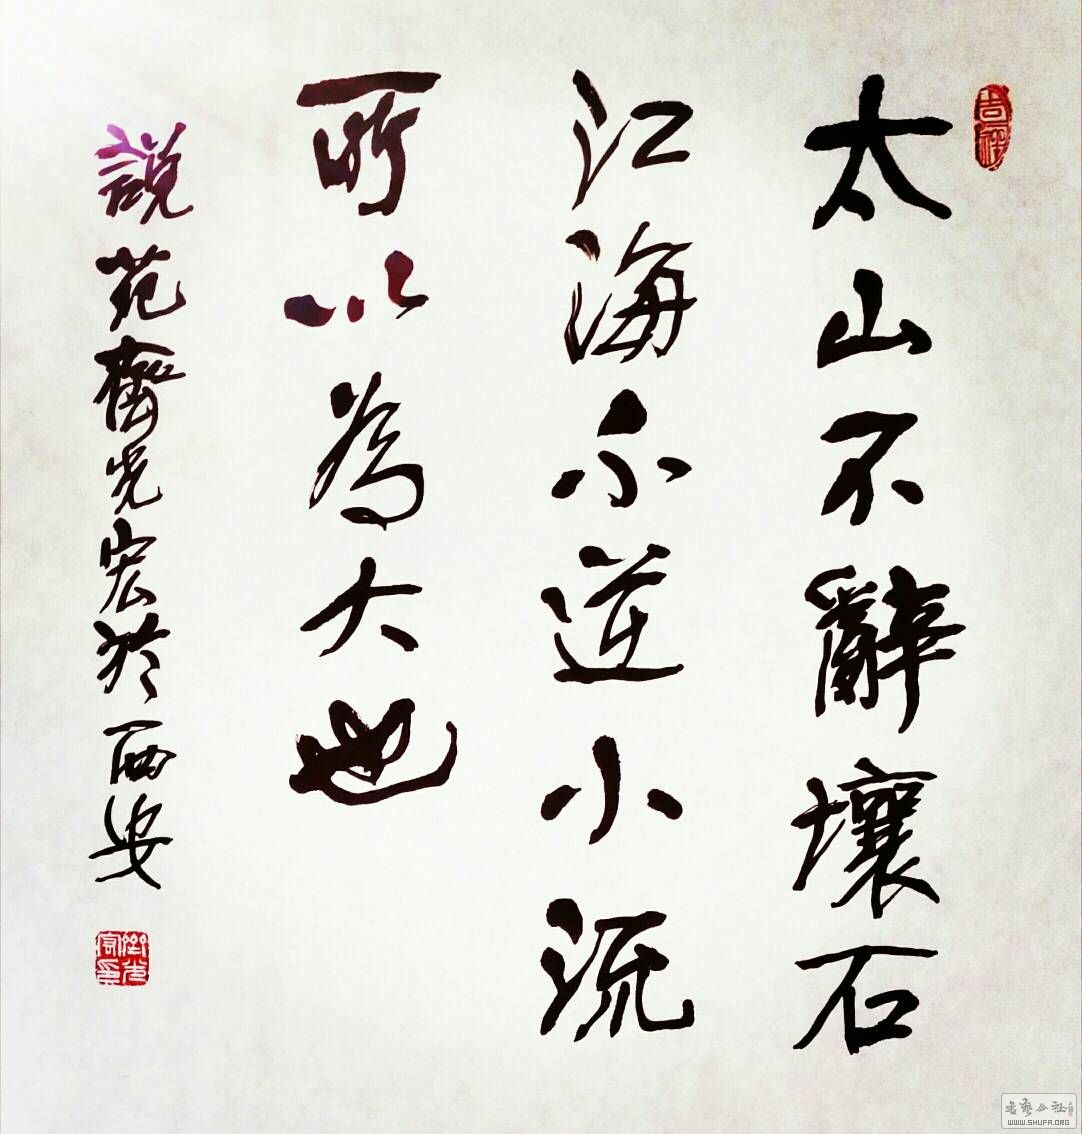 太山不辭壤石
江海不逆小流
所以為大也
說苑 光宏於西安
吉祥
WWW.SHUFA.ORG